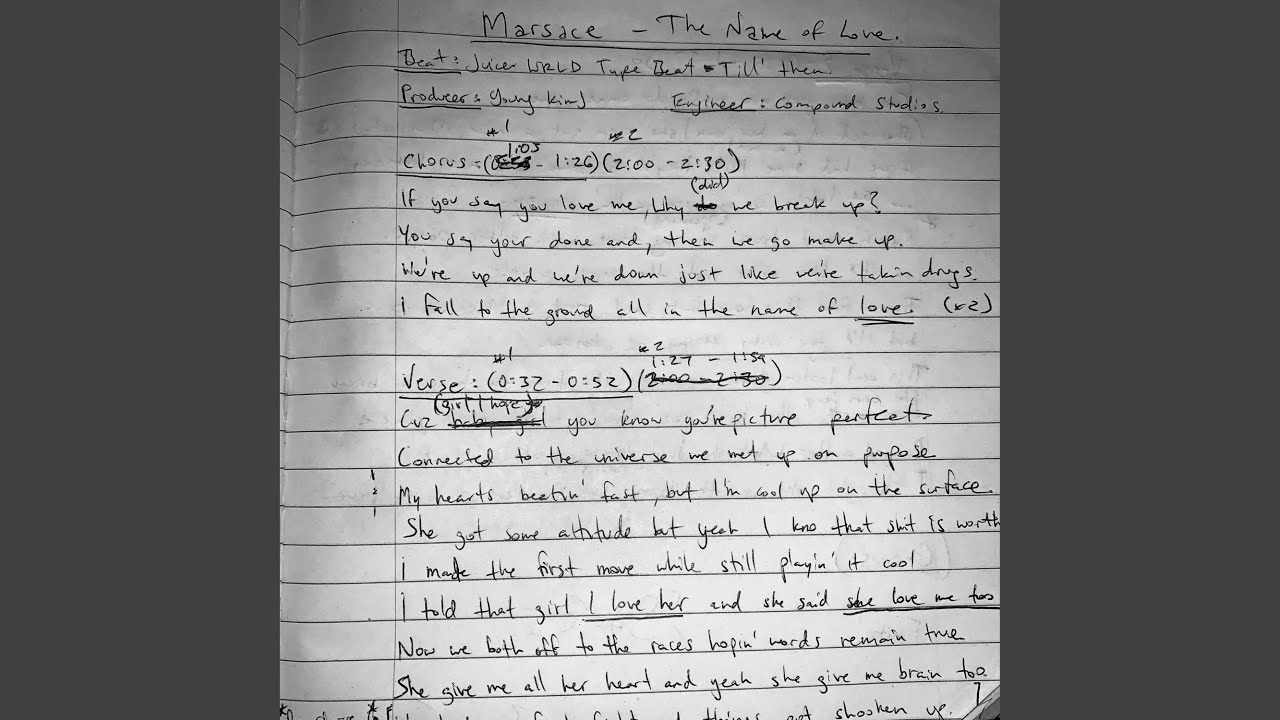 Marsace - The Name of Love.
Beat: Juice WRLD Type Beat - Till' then.
Producer: Young Kimj Engineer: Compound Studios.
#1 #2
1:03
Chorus: ( - 1:26) (2:00 - 2:30)
(did)
If you say you love me, Why do we break up?
You say your done and, then we go make up.
We're up and we're down just like we're takin drugs.
i fall to the ground all in the name of love. (x2)
#1 #2
1:27 - 1:59
Verse: (0:32 - 0:52) (2:00 - 2:30)
(girl I hope)
Cuz baby girl you know you're picture perfect.
Connected to the universe we met up on purpose
My hearts beetin' fast, but I'm cool up on the surface.
She got some attitude but yeah I kno that shit is worth
i made the first move while still playin' it cool
i told that girl I love her and she said she love me too
Now we both off to the races hopin' words remain true
She give me all her heart and yeah she give me brain too.
things got shooken up.